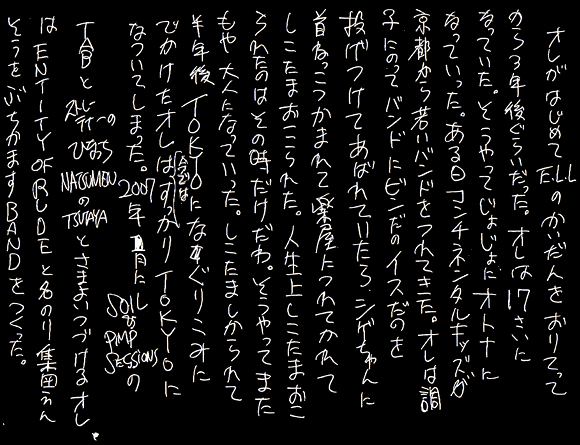 オレがはじめてELLのかいだんをおりてって
から3年後ぐらいだった。オレは17さいに
なっていた。そうやってじょじょにオトナに
なっていった。ある日コンチネンタルキッズが
京都から若いバンドをつれてきた。オレは調
子にのってバンドにビンだのイスだのを
投げつけてあばれていたら、シゲちゃんに
首ねっこつかまれて楽屋につれてかれて
しこたまおこられた。人生上しこたまおこ
られたのはその時だけだわ。そうやってまた
もや大人になっていった。しこたましかられて
半年後TOKYOになぐりこみに
でかけたオレは今ではすっかりTOKYOに
なついてしまった。2007年1月にSOIL&PIMP SESSIONSの
TABとストレーティーのひなっちNATSUMENのTSUTAYAとさまよいつづけるオレ、
はENTITY OF RUDEと名のり集団ふん
そうをぶちかますBANDをつくった。